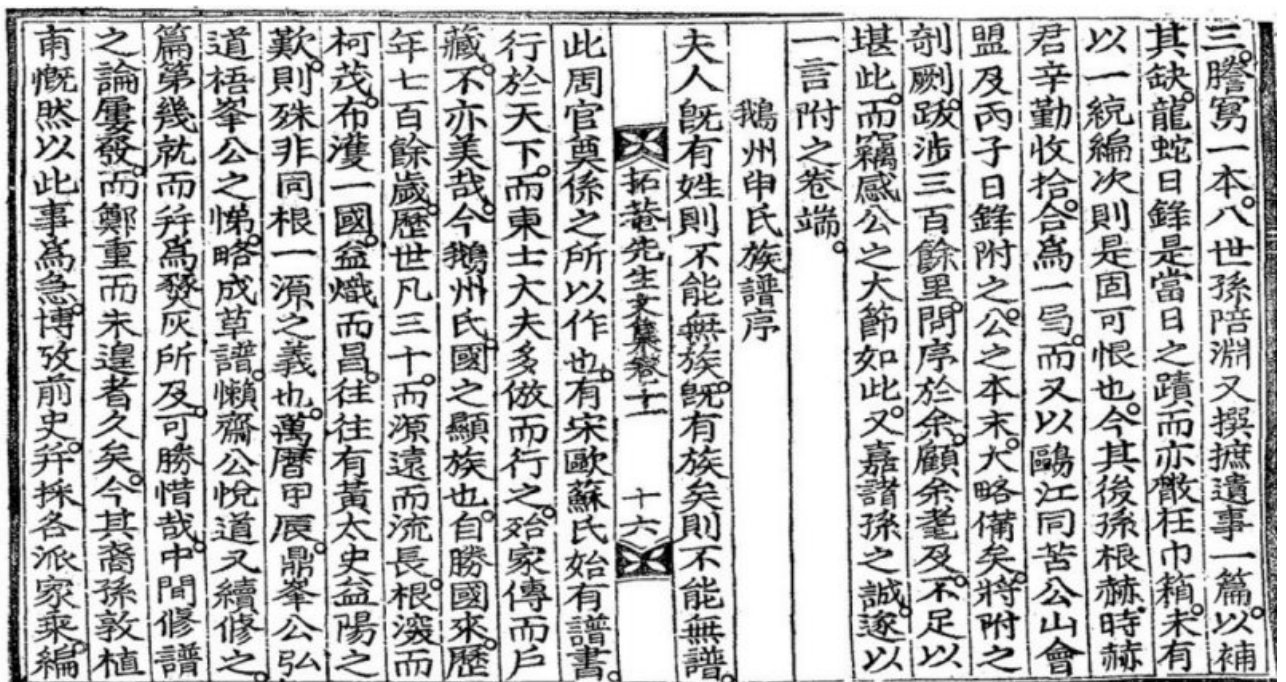 三。謄寫一本。八世孫陪淵又撰摭遺事一篇。以補
其缺。龍蛇日錄是當日之蹟而亦散在巾箱。未有
以一統編次則是固可恨也。今其後孫根赫時赫
君辛勤收拾。合爲一局。而又以鷗江同苦公山會
盟及丙子日錄附之。公之本末。大略備矣。將附之
剞劂。跋涉三百餘里。問序於余。顧余耄及。不足以
堪此。而竊感公之大節如此。又嘉諸孫之誠。遂以
一言附之卷端。
鵝州申氏族譜序
夫人旣有姓則不能無族。旣有族矣則不能無譜。
拓菴先生文集卷十一 十六
此周官奠係之所以作也。有宋歐蘇氏始有譜書。
行於天下。而東士大夫多倣而行之。殆家傳而戶
藏。不亦美哉。今鵝州氏。國之顯族也。自勝國來。歷
年七百餘歲。歷世凡三十。而源遠而流長。根深而
柯茂。布濩一國。益熾而昌。往往有黃太史益陽之
歎。則殊非同根一源之義也。萬曆甲辰。鼎峯公弘
道梧峯公之悌。略成草譜。懶齋公悅道又續修之。
篇第幾就而幷爲燹灰所及。可勝惜哉。中間修譜
之論屢發。而鄭重而未遑者久矣。今其裔孫敦植
甫慨然以此事爲急。博攷前史。幷採各派家乘。編